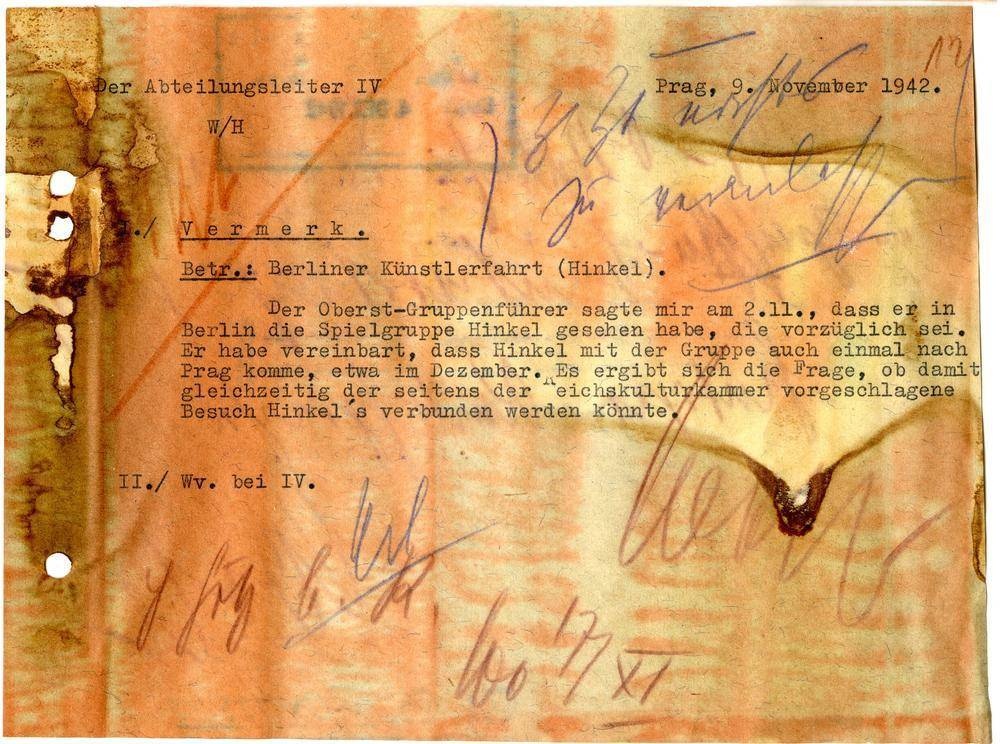 Der Abteilungsleiter IV
Prag, 9. November 1942.
W/H
zu veranlassen
I./ Vermerk.
Betr.: Berliner Künstlerfahrt (Hinkel).
Der Oberst-Gruppenführer sagte mir am 2.11., dass er in
Berlin die Spielgruppe Hinkel gesehen habe, die vorzüglich sei.
Er habe vereinbart, dass Hinkel mit der Gruppe auch einmal nach
Prag komme, etwa im Dezember. Es ergibt sich die Frage, ob damit
gleichzeitig der seitens der Reichskulturkammer vorgeschlagene
Besuch Hinkel's verbunden werden könnte.
II./ Wv. bei IV.
17/XI